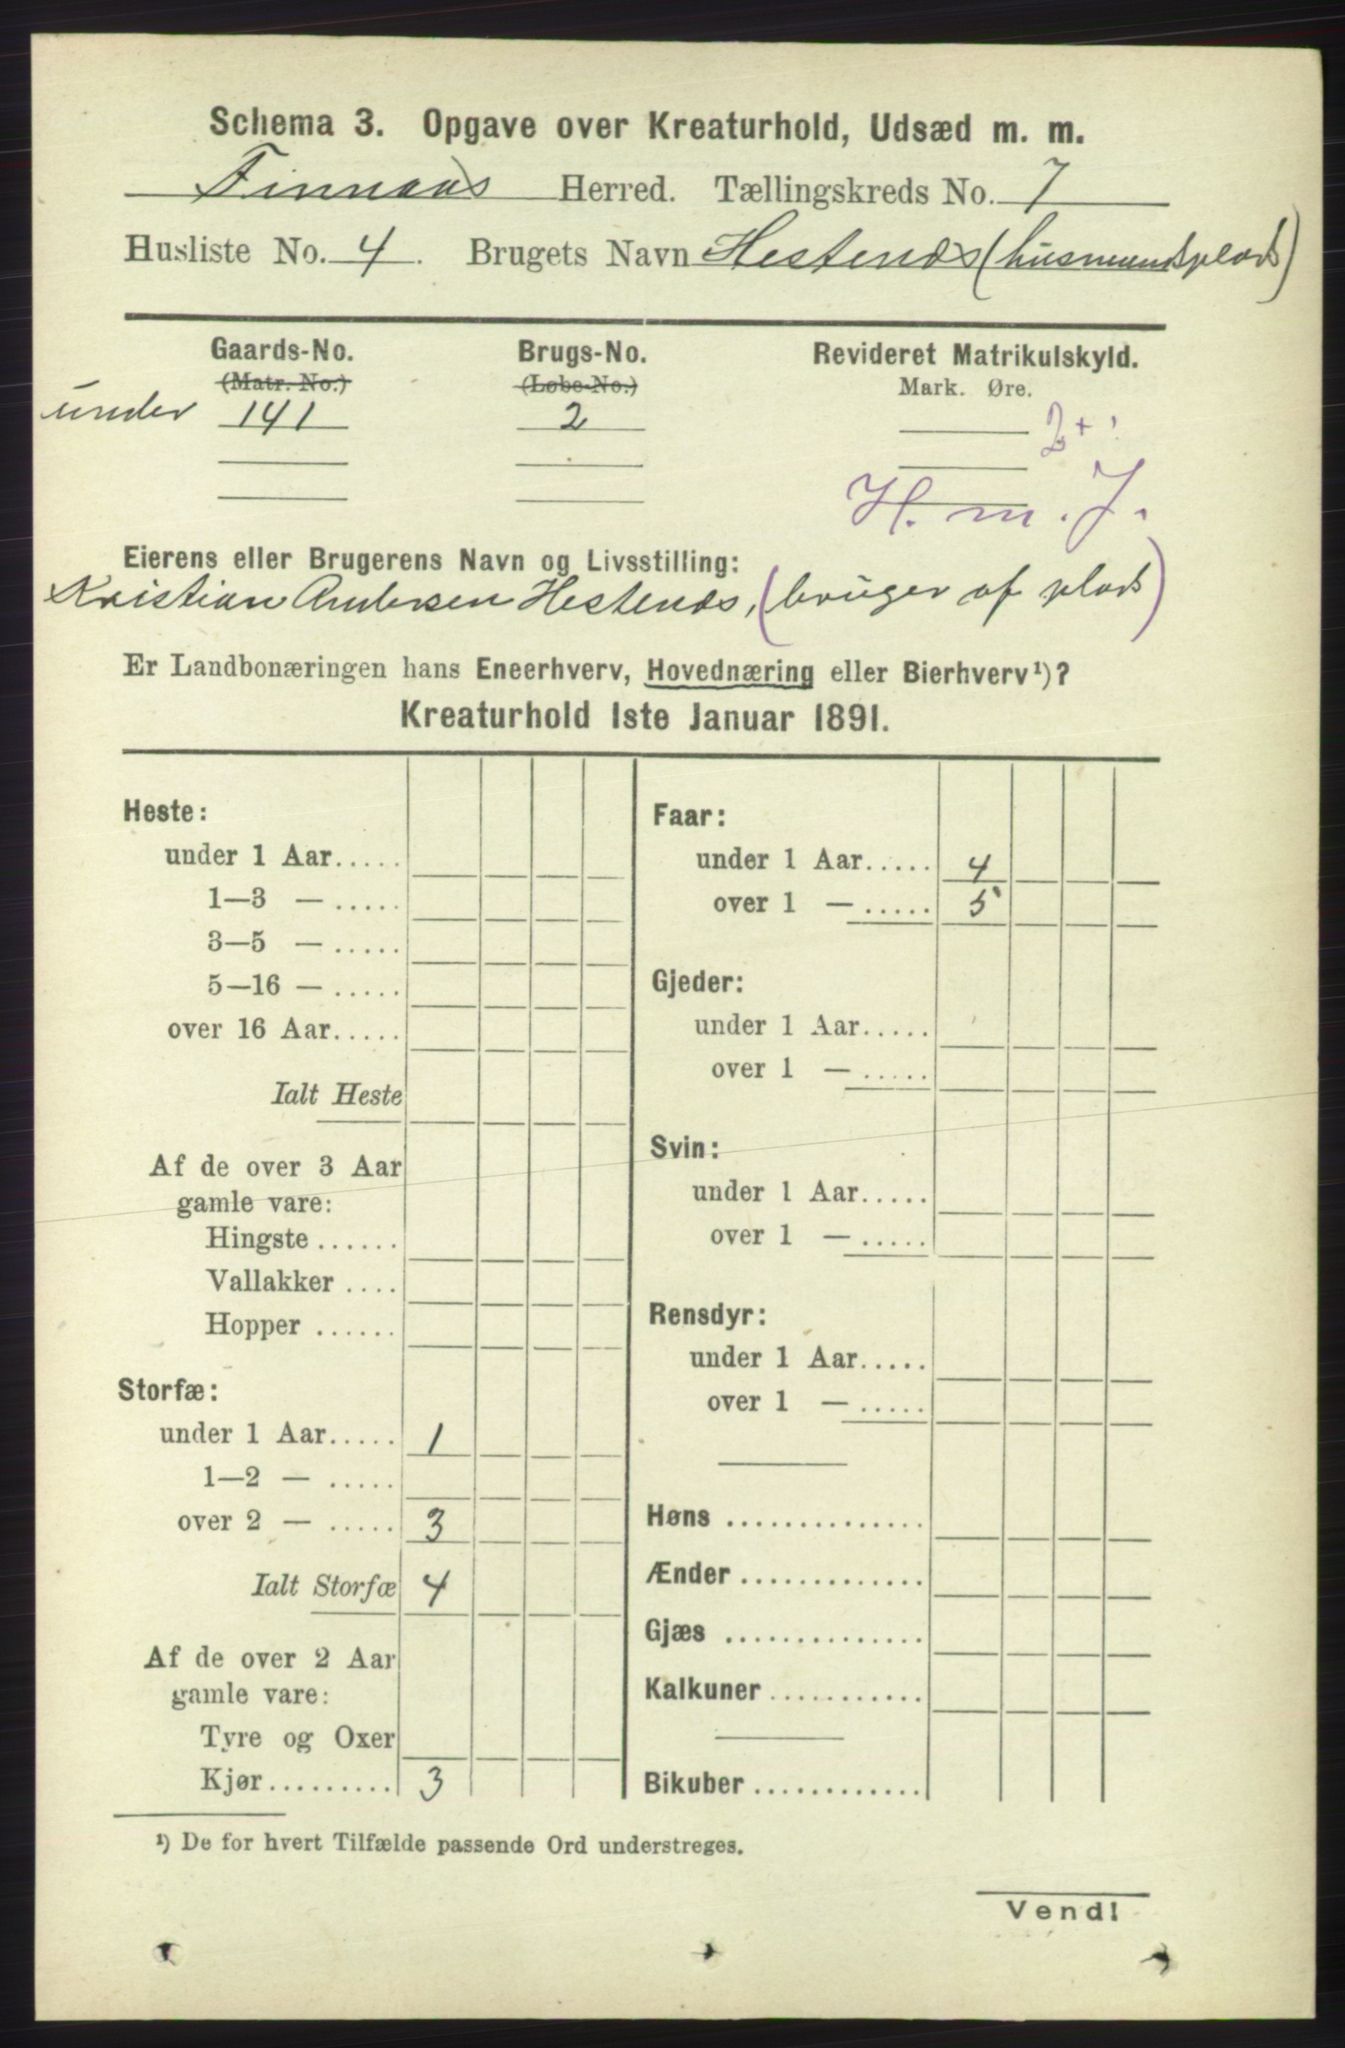 Schema 3. Opgave over Kreaturhold, Udsæd m. m.
Finnaas Herred. Tællingskreds No. 7
Husliste No. 4. Brugets Navn Hestenæs (husmandsplads)
Gaards-No. Brugs-No. Revideret Matrikulskyld.
(Matr. No.) (Løbe-No.) Mark. Øre.
under 141 2
2 +
H. m. J.
Eierens eller Brugerens Navn og Livsstilling:
Kristian Andersen Hestenæs, (bruger af plads)
Er Landbonæringen hans Eneerhverv, Hovednæring eller Bierhverv¹)?
Kreaturhold 1ste Januar 1891.
Heste:
under 1 Aar.....
1—3 — .....
3—5 — .....
5—16 — .....
over 16 Aar.....
Ialt Heste
Af de over 3 Aar
gamle vare:
Hingste ......
Vallakker ....
Hopper ......
Storfæ:
under 1 Aar..... 1
1—2 — .....
over 2 — ..... 3
Ialt Storfæ 4
Af de over 2 Aar
gamle vare:
Tyre og Oxer
Kjør......... 3
Faar:
under 1 Aar..... 4
over 1 — ..... 5
Gjeder:
under 1 Aar.....
over 1 — .....
Svin:
under 1 Aar.....
over 1 — .....
Rensdyr:
under 1 Aar.....
over 1 — .....
Høns ..............
Ænder .............
Gjæs ..............
Kalkuner ...........
Bikuber .............
¹) De for hvert Tilfælde passende Ord understreges.
Vend!